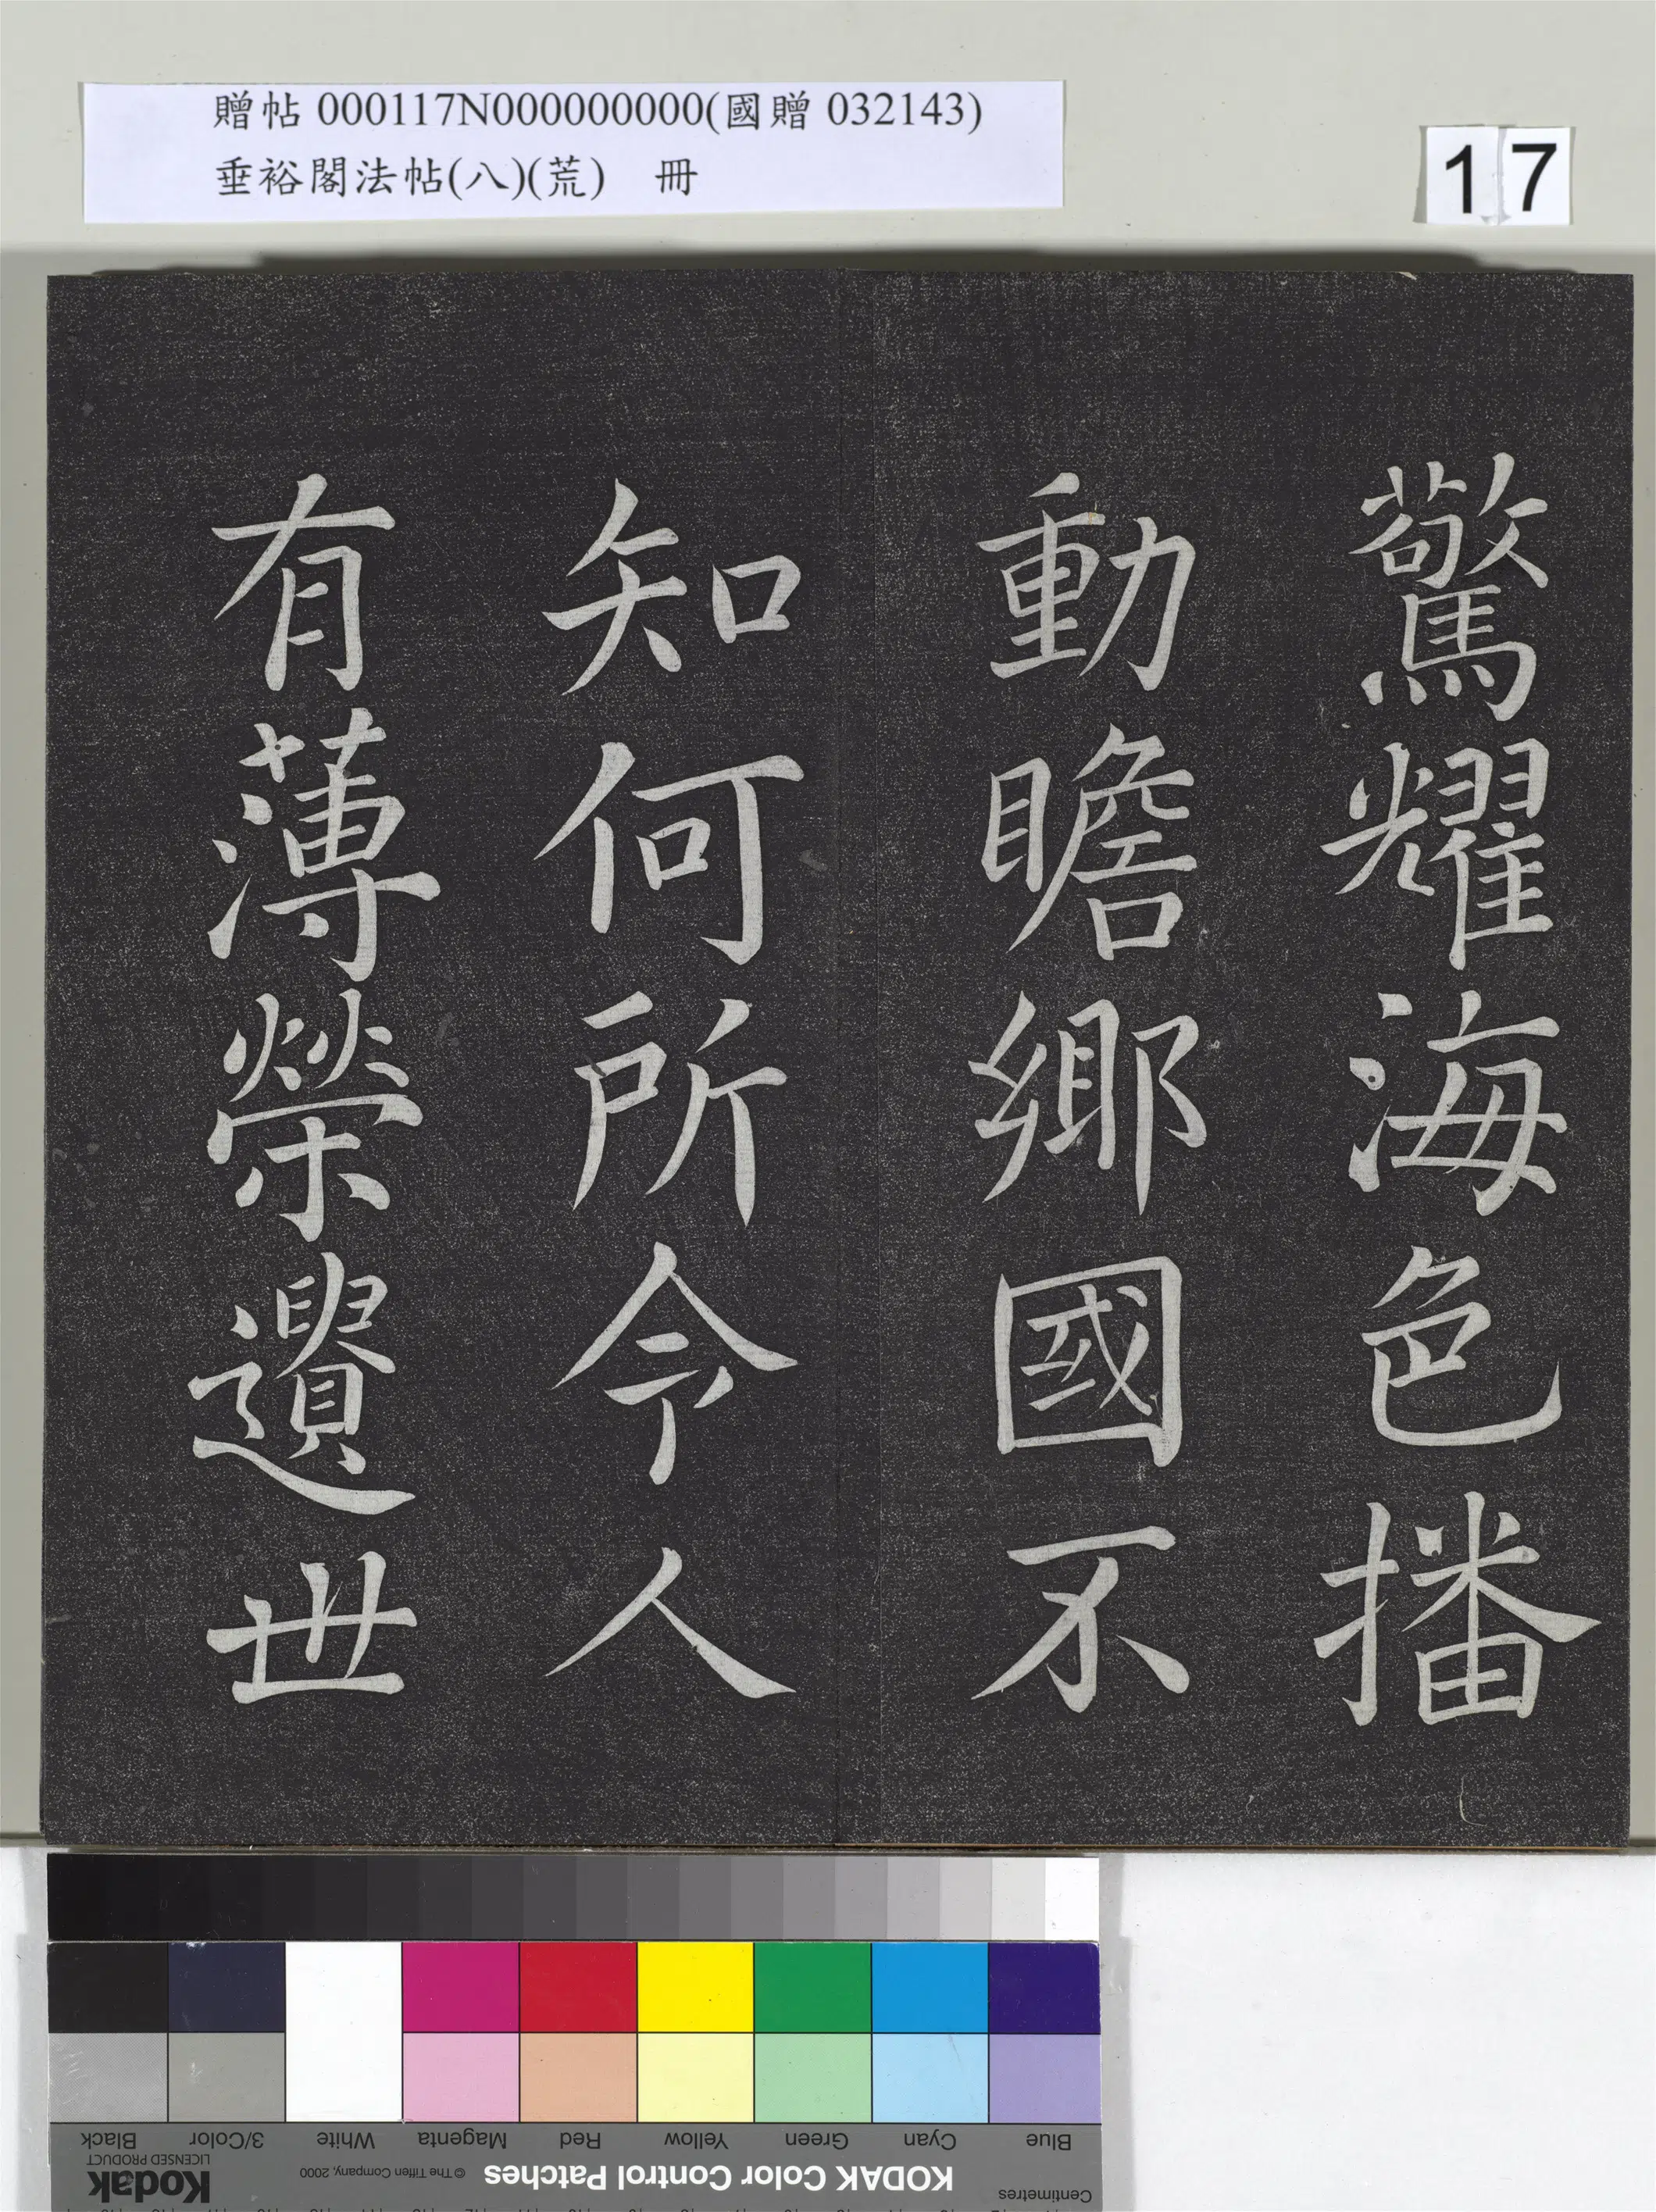 贈帖 000117N000000000(國贈 032143)
垂裕閣法帖(八)(荒) 冊
17
驚耀海色播
動瞻鄉國不
知何所令人
有薄榮遺世
Blue Cyan Green Yellow Red Magenta White 3/Color Black
KODAK Color Control Patches © The Tiffen Company, 2000 Kodak LICENSED PRODUCT
Centimetres